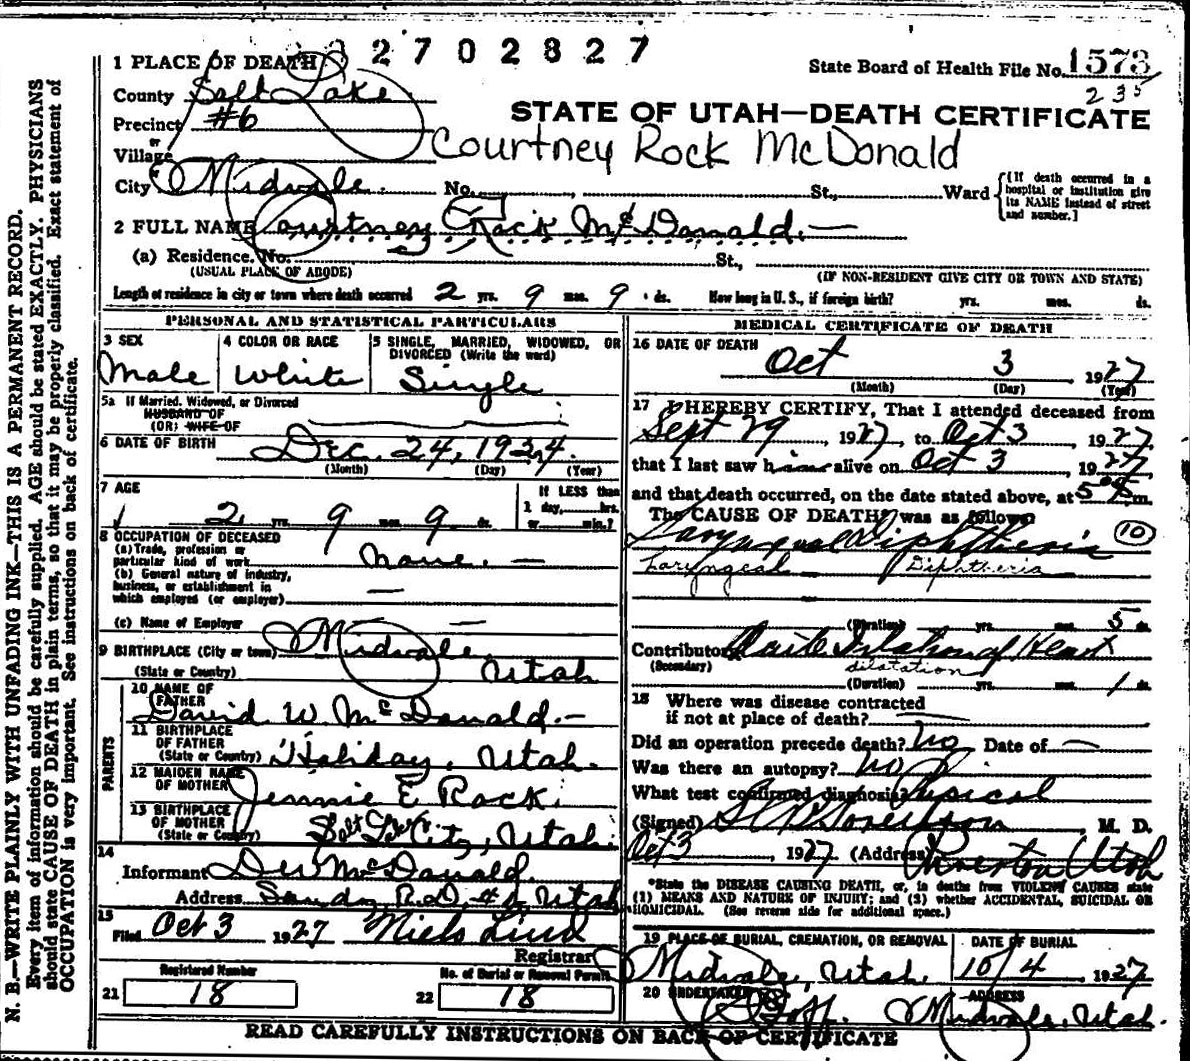 2702827
1 PLACE OF DEATH
State Board of Health File No. 1573
235
County Salt Lake
STATE OF UTAH—DEATH CERTIFICATE
Precinct #6
or
Village
Courtney Rock McDonald
City Midvale. No. , St., Ward
[If death occurred in a hospital or institution give its NAME instead of street and number.]
2 FULL NAME Courtney Rock McDonald.—
(a) Residence. No. St.,
(USUAL PLACE OF ABODE) (IF NON-RESIDENT GIVE CITY OR TOWN AND STATE)
Length of residence in city or town where death occurred 2 yrs. 9 mos. 9 ds. How long in U. S., if foreign birth? yrs. mos. ds.
PERSONAL AND STATISTICAL PARTICULARS
3 SEX
Male
4 COLOR OR RACE
White
5 SINGLE, MARRIED, WIDOWED, OR DIVORCED (Write the word)
Single
5a If Married, Widowed, or Divorced
HUSBAND OF
(OR) WIFE OF
6 DATE OF BIRTH Dec. 24, 1924.
(Month) (Day) (Year)
7 AGE
2 yrs. 9 mos. 9 ds.
If LESS than
1 day, hrs.
or min.?
8 OCCUPATION OF DECEASED
(a) Trade, profession or
particular kind of work none. —
(b) General nature of industry,
business, or establishment in
which employed (or employer) —
(c) Name of Employer —
9 BIRTHPLACE (City or town) Midvale
(State or Country) Utah
PARENTS
10 NAME OF FATHER
David W. McDonald.—
11 BIRTHPLACE OF FATHER
(State or Country) Holiday, Utah.
12 MAIDEN NAME OF MOTHER
Jennie E Rock.
13 BIRTHPLACE OF MOTHER
(State or Country) Salt Lake City, Utah.
14
Informant McDonald.
Address Sandy R.D. Utah
15
Filed Oct 3 1927 Niels Lind
Registrar
Registered Number
21 18
No. of Burial or Removal Permit
22 18
MEDICAL CERTIFICATE OF DEATH
16 DATE OF DEATH
Oct 3 1927
(Month) (Day) (Year)
17 I HEREBY CERTIFY, That I attended deceased from
Sept 29, 1927, to Oct 3, 1927
that I last saw him alive on Oct 3, 1927
and that death occurred, on the date stated above, at 5 m.
The CAUSE OF DEATH* was as follows:
Laryngeal Diphtheria (10)
Laryngeal Diphtheria
(Duration) yrs. mos. 5 ds.
Contributory Acute Dilation of Heart
(Secondary) dilatation
(Duration) yrs. mos. 1 ds.
18 Where was disease contracted
if not at place of death? —
Did an operation precede death? No Date of —
Was there an autopsy? No
What test confirmed diagnosis? Physical
(Signed) Sorenson, M. D.
Oct 3, 1927 (Address) Riverton Utah
*State the DISEASE CAUSING DEATH, or, in deaths from VIOLENT CAUSES state
(1) MEANS AND NATURE OF INJURY; and (2) whether ACCIDENTAL, SUICIDAL OR
HOMICIDAL. (See reverse side for additional space.)
19 PLACE OF BURIAL, CREMATION, OR REMOVAL
Midvale, Utah.
DATE OF BURIAL
10/4, 1927
20 UNDERTAKER
Goff.
ADDRESS
Midvale, Utah.
READ CAREFULLY INSTRUCTIONS ON BACK OF CERTIFICATE
N. B.—WRITE PLAINLY WITH UNFADING INK—THIS IS A PERMANENT RECORD.
Every item of information should be carefully supplied. AGE should be stated EXACTLY. PHYSICIANS
should state CAUSE OF DEATH in plain terms, so that it may be properly classified. Exact statement of
OCCUPATION is very important. See instructions on back of certificate.